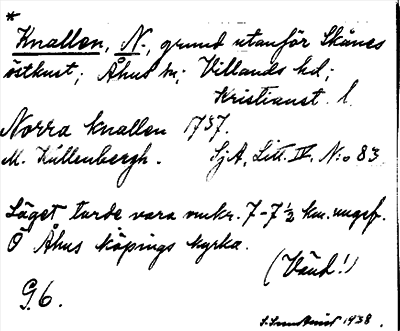 *
Knallen, N., grund utanför Skånes
östkust; Åhus sn; Villands hd;
Kristianst. l.
Norra knallen 1737.
M. Kullenbergh. SjA, Litt. IV, N:o 83
Läget torde vara omkr. 7-7½ km. ungef.
Ö Åhus köpings kyrka.
(Vänd!)
G.6.
1938.